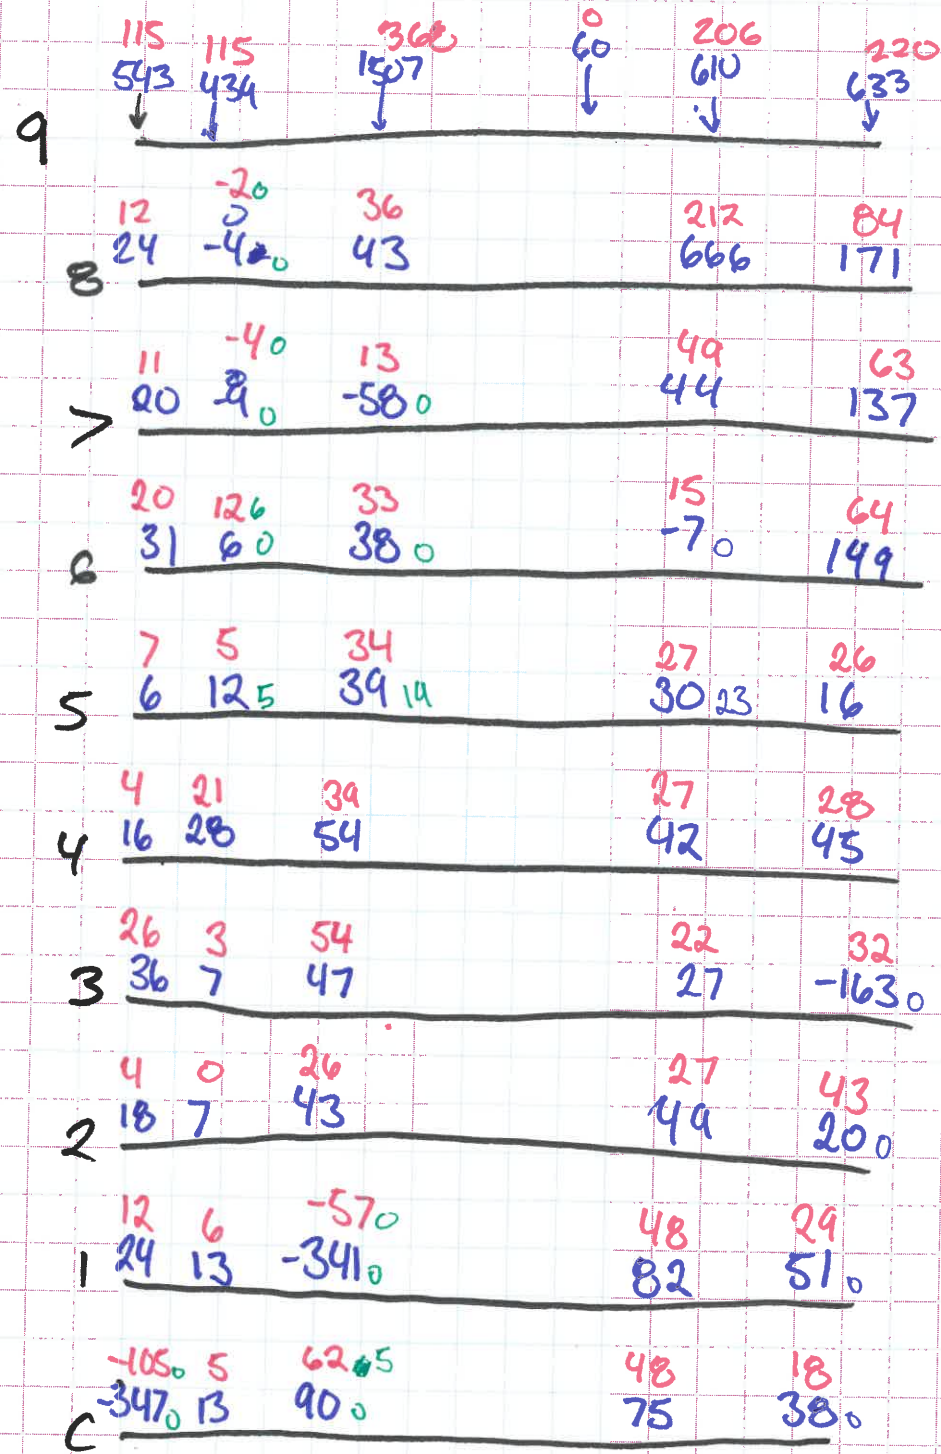 115 115 368 0 206 220
543 434 1507 60 610 633
9
-20
12 0 36 212 84
24 -4 0 43 666 171
8
-40
11 13 49 63
20 0 -58 0 44 137
>
20 126 33 15 64
31 6 0 38 0 -7 0 149
6
7 5 34 27 26
6 12 5 39 19 30 23 16
5
4 21 39 27 28
16 28 54 42 45
4
26 3 54 22 32
36 7 47 27 -163 0
3
4 0 26 27 43
18 7 43 49 20 0
2
12 6 -57 0 48 29
24 13 -341 0 82 51 0
1
-105 0 5 62 5 48 18
-347 0 13 90 0 75 38 0
C